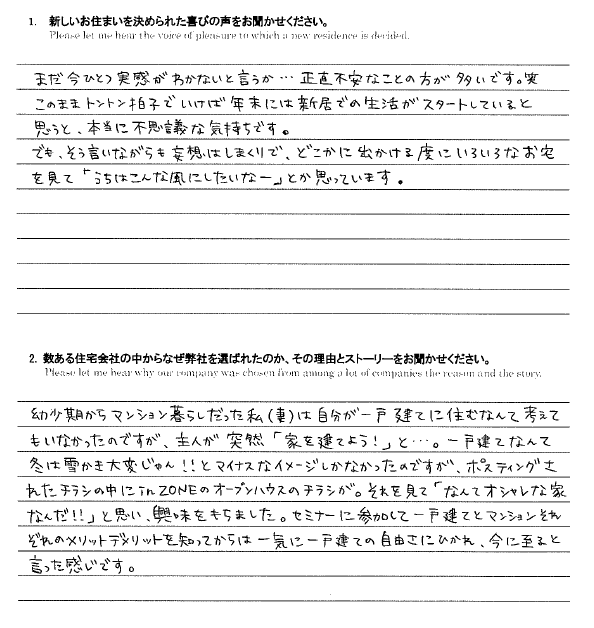 1. 新しいお住まいを決められた喜びの声をお聞かせください。
Please let me hear the voice of pleasure to which a new residence is decided.
まだ今ひとつ実感がわかないと言うか…正直不安なことの方が多いです。笑
このままトントン拍子でいけば年末には新居での生活がスタートしていると
思うと、本当に不思議な気持ちです。
でも、そう言いながらも妄想はしまくりで、どこかに出かける度にいろいろなお宅
を見て「うちはこんな風にしたいなー」とか思っています。
2. 数ある住宅会社の中からなぜ弊社を選ばれたのか、その理由とストーリーをお聞かせください。
Please let me hear why our company was chosen from among a lot of companies the reason and the story.
幼少期からマンション暮らしだった私(妻)は自分が一戸建てに住むなんて考えて
もいなかったのですが、主人が突然「家を建てよう!」と…。一戸建てなんて
冬は雪かき大変じゃん!!とマイナスなイメージしかなかったのですが、ポスティングさ
れたチラシの中に ZONEのオープンハウスのチラシが。それを見て「なんてオシャレな家
なんだ!!」と思い、興味をもちました。セミナーに参加して一戸建てとマンションそれ
ぞれのメリットデメリットを知ってからは一気に一戸建ての自由さにひかれ、今に至ると
言った感じです。